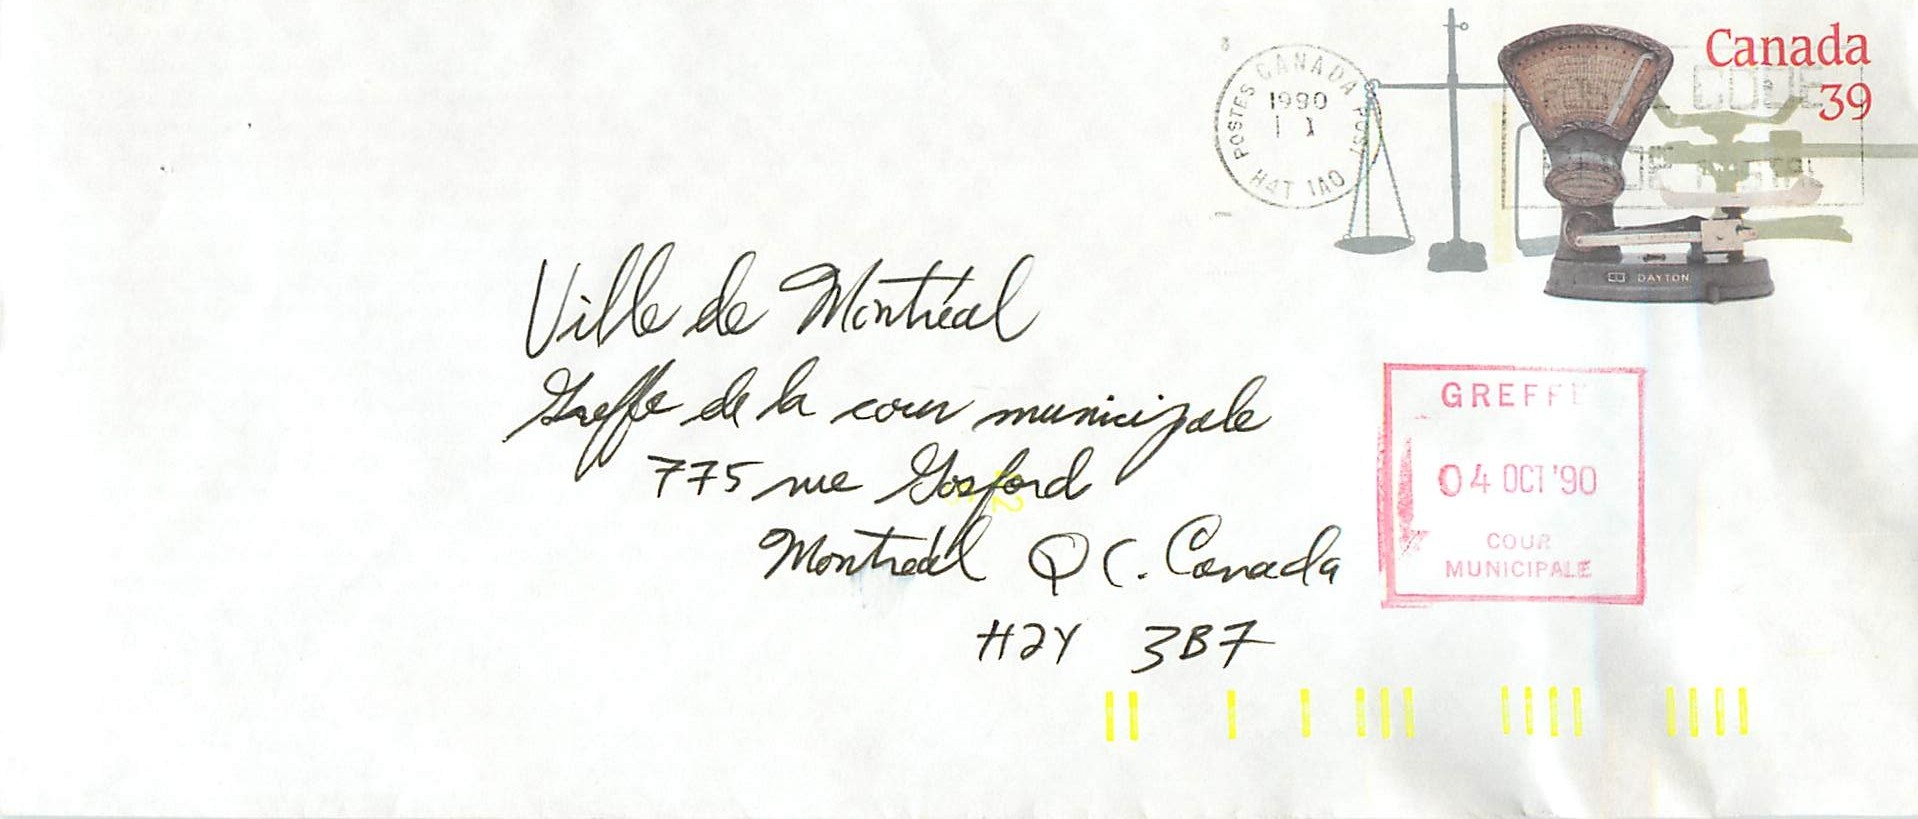 Canada
39
POSTES CANADA POST
1990
H4T 1A0
CODE
DAYTON
Ville de Montréal
Greffe de la cour municipale
775 rue Gosford
Montréal QC. Canada
H2Y 3B7
GREFFE
04 OCT '90
COUR
MUNICIPALE